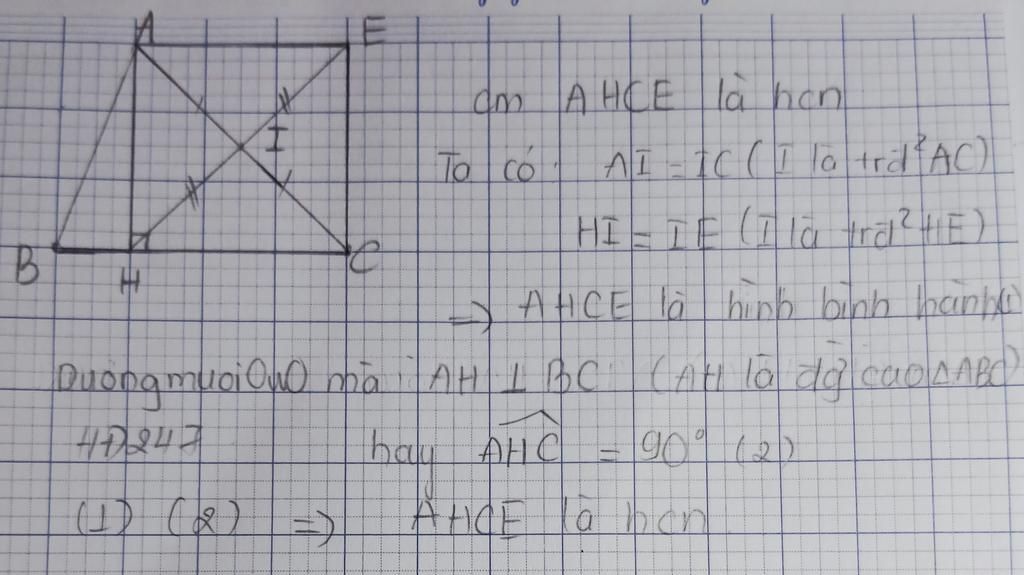 A E
I
B H C
cm AHCE là hcn
Ta có: AI = IC (I là trđ² AC)
HI = IE (I là trđ² HE)
=> AHCE là hình bình hành (1)
DuongmuoiOwO mà AH ⊥ BC (AH là đg cao ΔABC)
HD247 hay AHC = 90° (2)
(1) (2) => AHCE là hcn